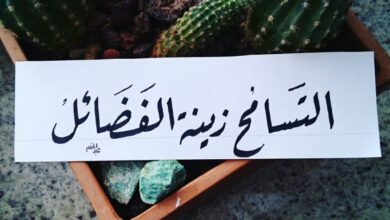 التَسَامُح زينة الفَضَائلْ